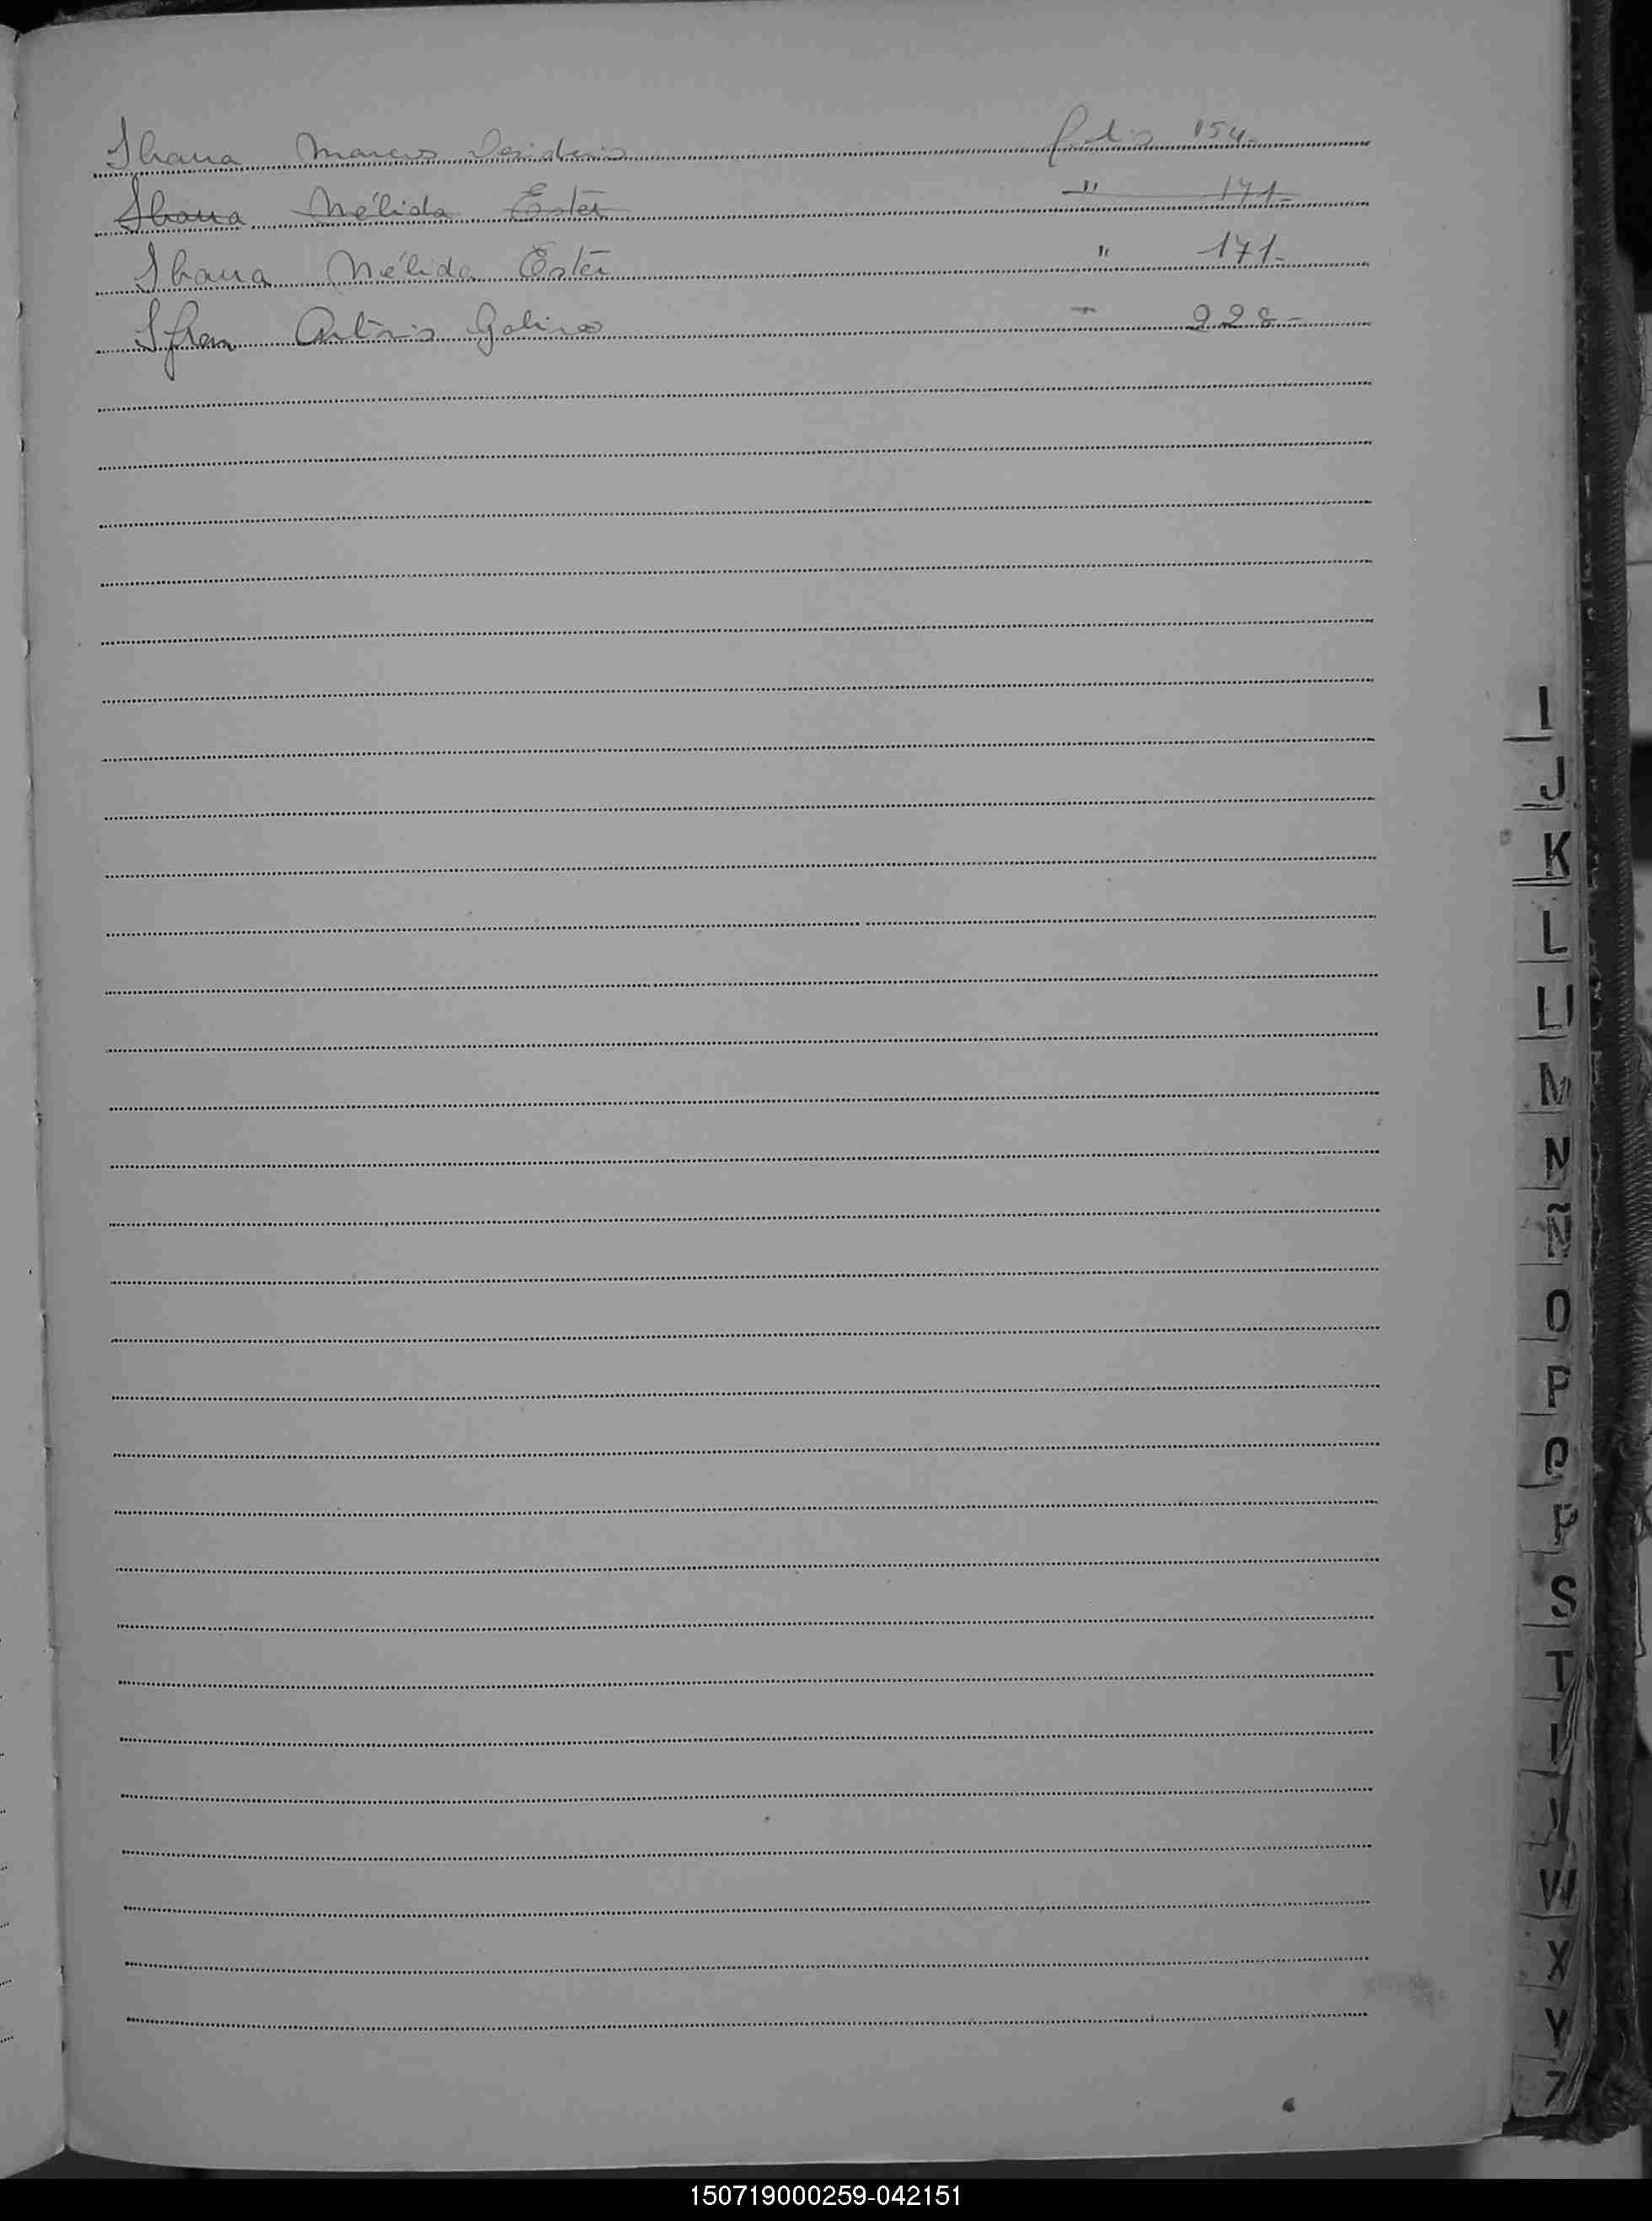 Ibarra Marcos Desiderio folio 154.
Ibarra Nélida Ester " 171.
Ibarra Nélida Ester " 171.
Ifran Antonio Gabino - 228-
I
J
K
L
LL
M
N
Ñ
O
P
Q
R
S
T
W
X
Y
Z
150719000259-042151